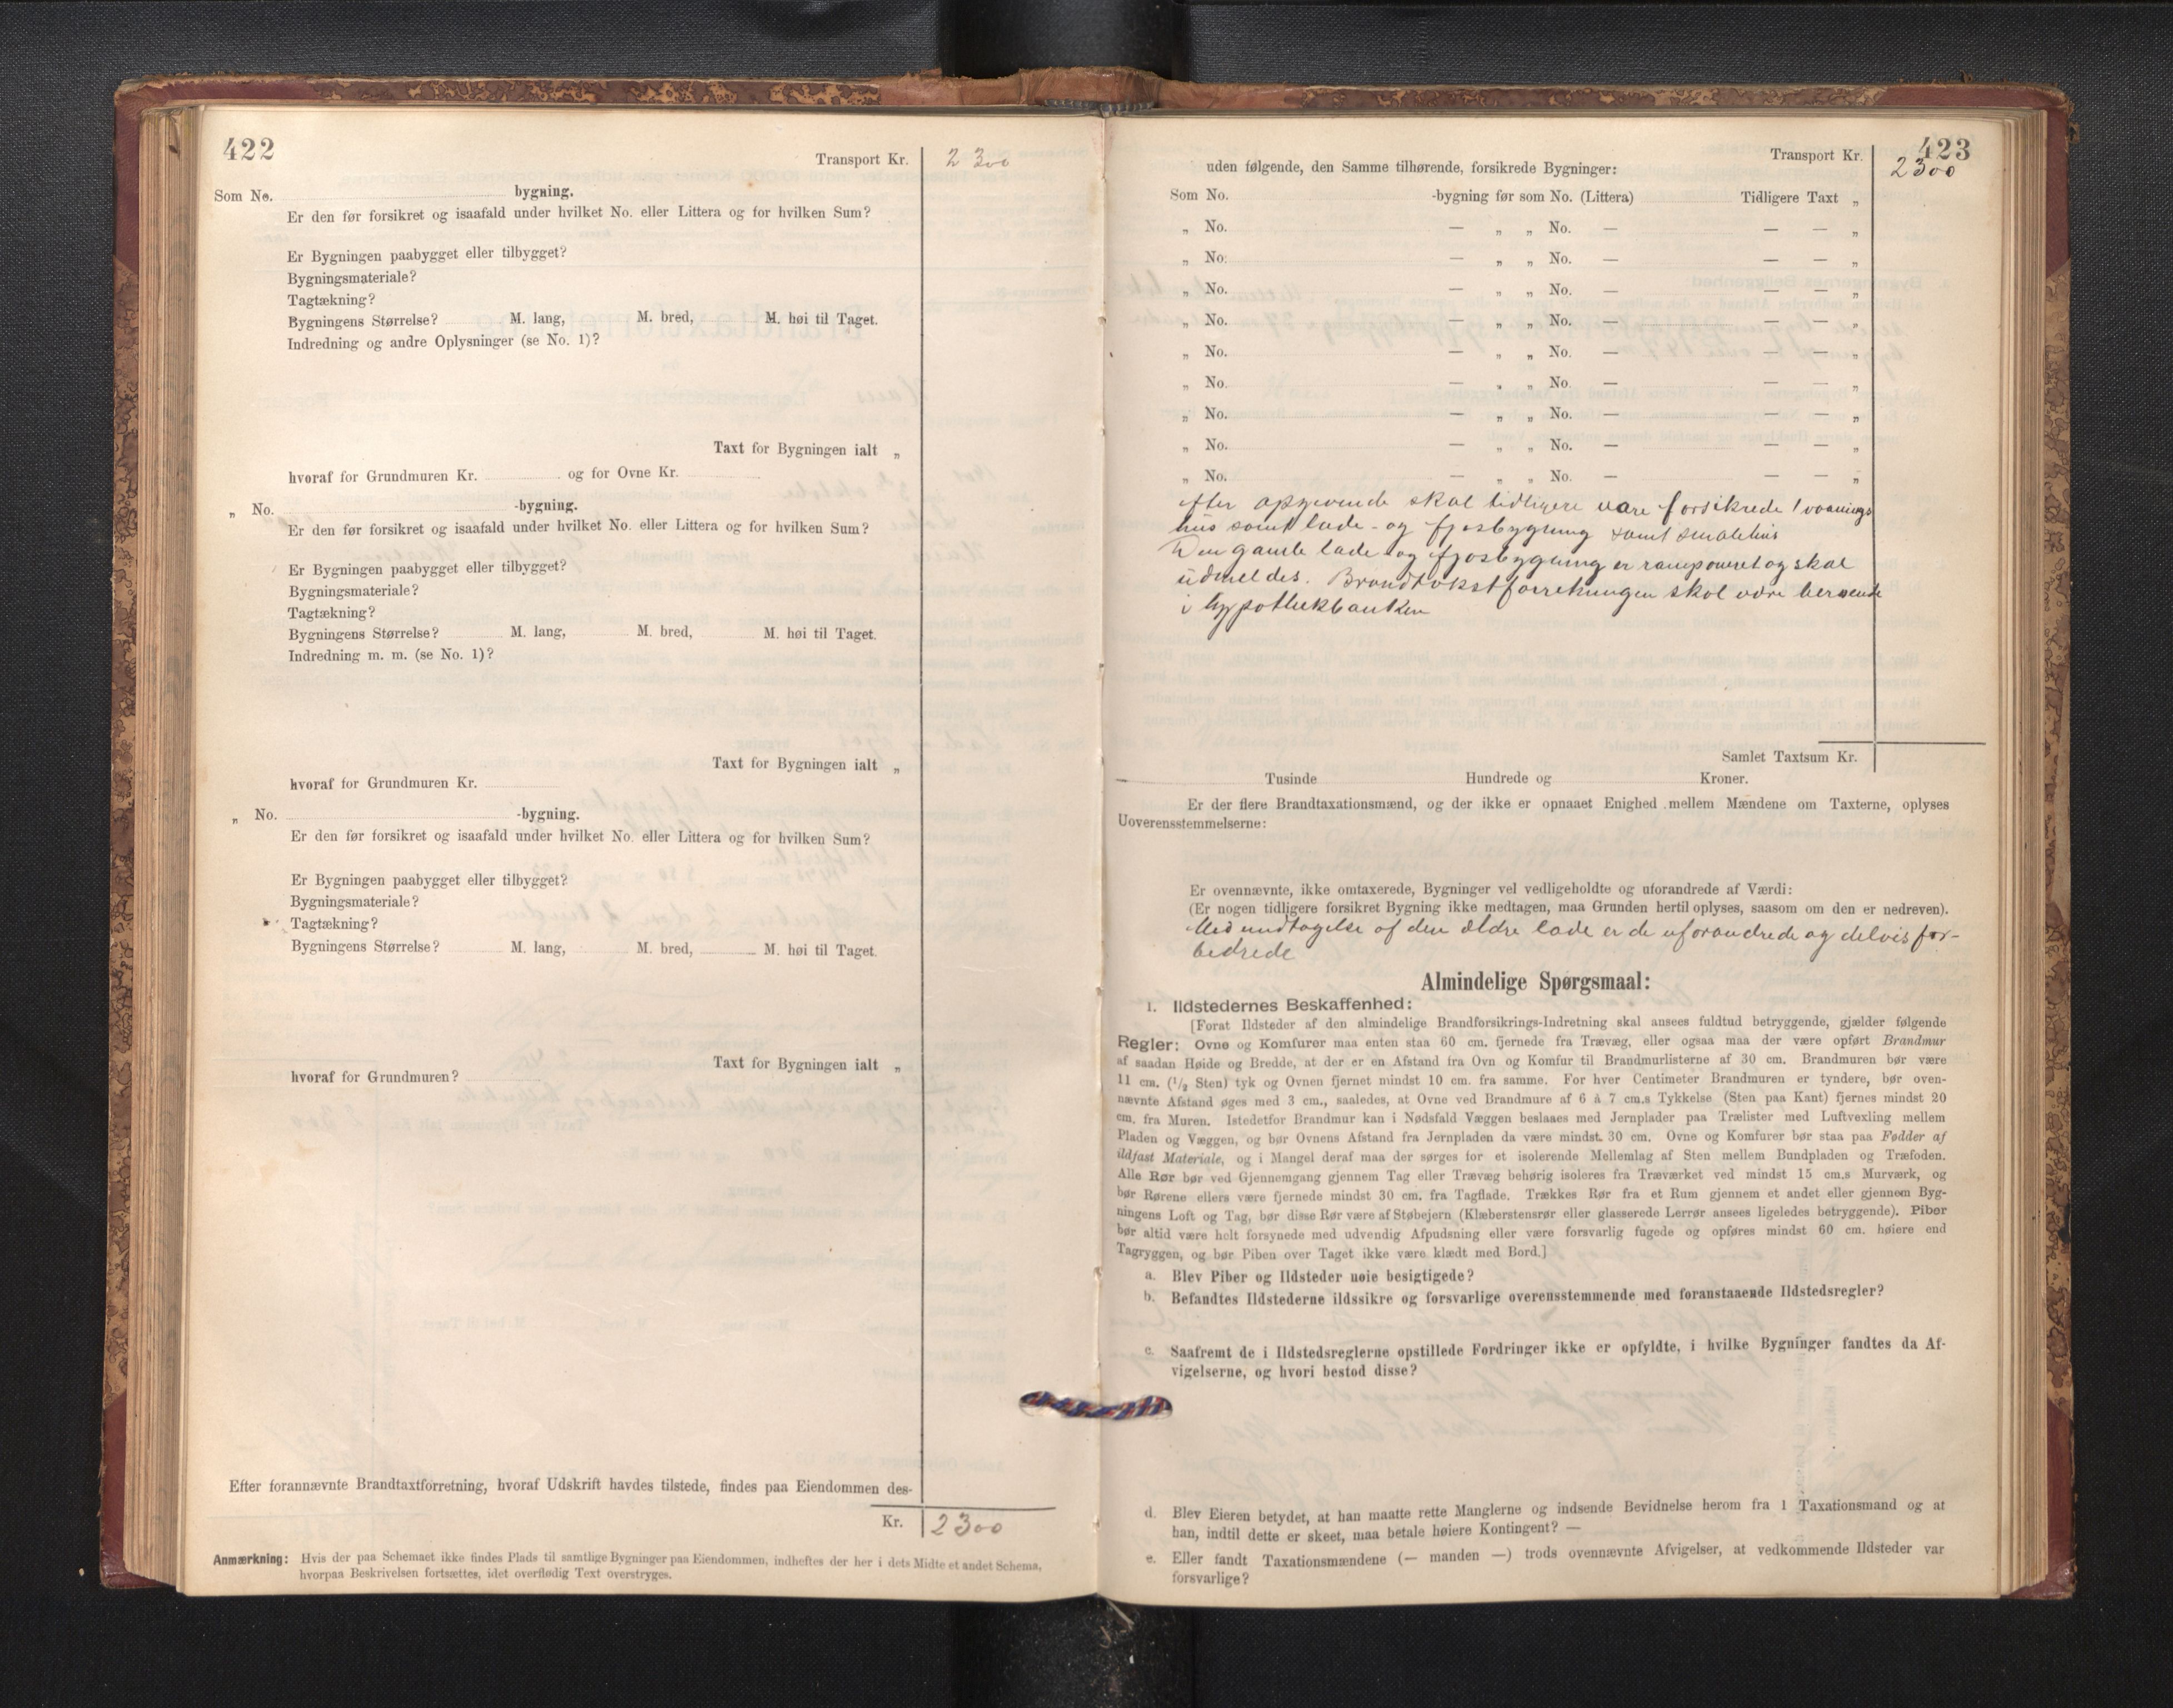 422
Transport Kr. 2300
Som No. bygning.
Er den før forsikret og isaafald under hvilket No. eller Littera og for hvilken Sum?
Er Bygningen paabygget eller tilbygget?
Bygningsmateriale?
Tagtækning?
Bygningens Størrelse? M. lang, M. bred, M. høi til Taget.
Indredning og andre Oplysninger (se No. 1)?
Taxt for Bygningen ialt „
hvoraf for Grundmuren Kr. og for Ovne Kr.
„ No. -bygning.
Er den før forsikret og isaafald under hvilket No. eller Littera og for hvilken Sum?
Er Bygningen paabygget eller tilbygget?
Bygningsmateriale?
Tagtækning?
Bygningens Størrelse? M. lang, M. bred, M. høi til Taget.
Indredning m. m. (se No. 1)?
Taxt for Bygningen ialt „
hvoraf for Grundmuren Kr.
„ No. -bygning.
Er den før forsikret og isaafald under hvilket No. eller Littera og for hvilken Sum?
Er Bygningen paabygget eller tilbygget?
Bygningsmateriale?
Tagtækning?
Bygningens Størrelse? M. lang, M. bred, M. høi til Taget.
Taxt for Bygningen ialt „
hvoraf for Grundmuren?
Efter forannævnte Brandtaxtforretning, hvoraf Udskrift havdes tilstede, findes paa Eiendommen des-
Kr. 2300
Anmærkning: Hvis der paa Schemaet ikke findes Plads til samtlige Bygninger paa Eiendommen, indheftes der her i dets Midte et andet Schema,
hvorpaa Beskrivelsen fortsættes, idet overflødig Text overstryges.
423
Transport Kr. 2300
uden følgende, den Samme tilhørende, forsikrede Bygninger:
Som No. -bygning før som No. (Littera) Tidligere Taxt „
„ No. — „ „ No. — — — „
„ No. — „ „ No. — — — „
„ No. — „ „ No. — — — „
„ No. — „ „ No. — — — „
„ No. — „ „ No. — — — „
„ No. — „ „ No. — — — „
„ No. — „ „ No. — — — „
„ No. — „ „ No. — — — „
„ No. — „ „ No. — — — „
Efter opgivende skal tidligere være forsikrede 1 vaanings
hus samt lade- og fjøsbygning samt smalehus
Den gamle lade og fjøsbygning er ramponeret og skal
udmeldes. Brandtakstforretningen skal være beroende
i hypothekbanken
Samlet Taxtsum Kr.
Tusinde Hundrede og Kroner.
Er der flere Brandtaxationsmænd, og der ikke er opnaaet Enighed mellem Mændene om Taxterne, oplyses
Uoverensstemmelserne:
Er ovennævnte, ikke omtaxerede, Bygninger vel vedligeholdte og uforandrede af Værdi:
(Er nogen tidligere forsikret Bygning ikke medtagen, maa Grunden hertil oplyses, saasom om den er nedreven).
Med undtagelse af den ældre lade er de uforandrede og delvis for-
bedrede
Almindelige Spørgsmaal:
1. Ildstedernes Beskaffenhed:
[Forat Ildsteder af den almindelige Brandforsikrings-Indretning skal ansees fuldtud betryggende, gjælder følgende
Regler: Ovne og Komfurer maa enten staa 60 cm. fjernede fra Trævæg, eller ogsaa maa der være opført Brandmur
af saadan Høide og Bredde, at der er en Afstand fra Ovn og Komfur til Brandmurlisterne af 30 cm. Brandmuren bør være
11 cm. (1/2 Sten) tyk og Ovnen fjernet mindst 10 cm. fra samme. For hver Centimeter Brandmuren er tyndere, bør oven-
nævnte Afstand øges med 3 cm., saaledes, at Ovne ved Brandmure af 6 à 7 cm.s Tykkelse (Sten paa Kant) fjernes mindst 20
cm. fra Muren. Istedetfor Brandmur kan i Nødsfald Væggen beslaaes med Jernplader paa Trælister med Luftvexling mellem
Pladen og Væggen, og bør Ovnens Afstand fra Jernpladen da være mindst 30 cm. Ovne og Komfurer bør staa paa Fødder af
ildfast Materiale, og i Mangel deraf maa der sørges for et isolerende Mellemlag af Sten mellem Bundpladen og Træfoden.
Alle Rør bør ved Gjennemgang gjennem Tag eller Trævæg behørig isoleres fra Træværket ved mindst 15 cm.s Murværk, og
bør Rørene ellers være fjernede mindst 30 cm. fra Tagflade. Trækkes Rør fra et Rum gjennem et andet eller gjennem Byg-
ningens Loft og Tag, bør disse Rør være af Støbejern (Klæberstensrør eller glasserede Lerrør ansees ligeledes betryggende). Piber
bør altid være helt forsynede med udvendig Afpudsning eller være forsvarlig fugede og opføres mindst 60 cm. høiere end
Tagryggen, og bør Piben over Taget ikke være klædt med Bord.]
a. Blev Piber og Ildsteder nøie besigtigede?
b. Befandtes Ildstederne ildssikre og forsvarlige overensstemmende med foranstaaende Ildstedsregler?
c. Saafremt de i Ildstedsreglerne opstillede Fordringer ikke er opfyldte, i hvilke Bygninger fandtes da Af-
vigelserne, og hvori bestod disse?
d. Blev Eieren betydet, at han maatte rette Manglerne og indsende Bevidnelse herom fra 1 Taxationsmand og at
han, indtil dette er skeet, maa betale høiere Kontingent? —
e. Eller fandt Taxationsmændene (— manden —) trods ovennævnte Afvigelser, at vedkommende Ildsteder var
forsvarlige?